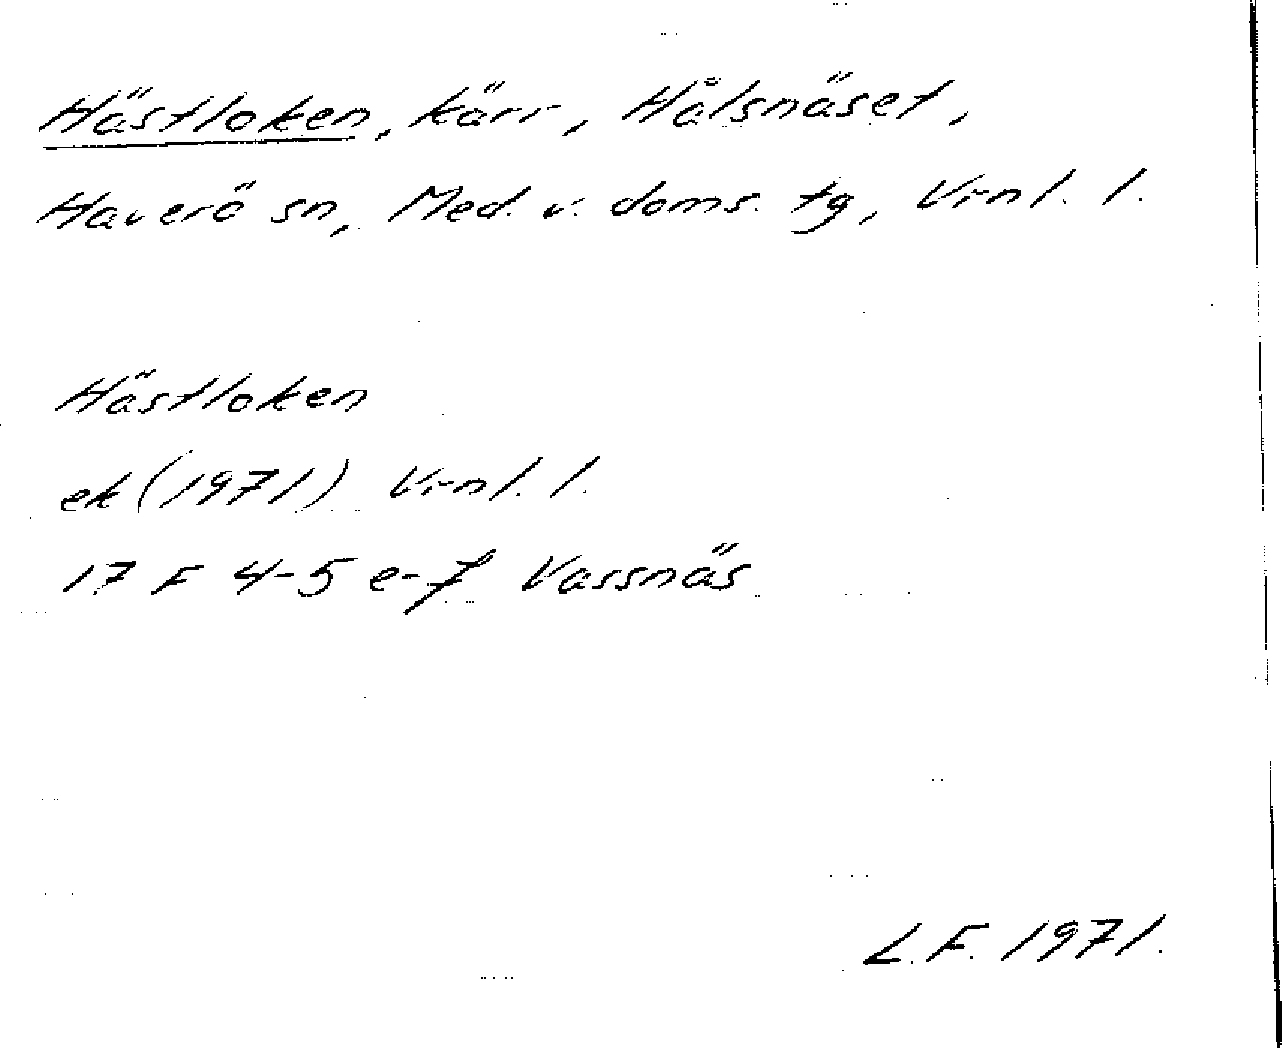 Hästloken, kärr, Hålsnäset,
Haverö sn, Med. v. doms. tg, Vrnl. l.
Hästloken
ek (1971) Vrnl. l.
17 F 4-5 e-f Vassnäs
L.F. 1971.